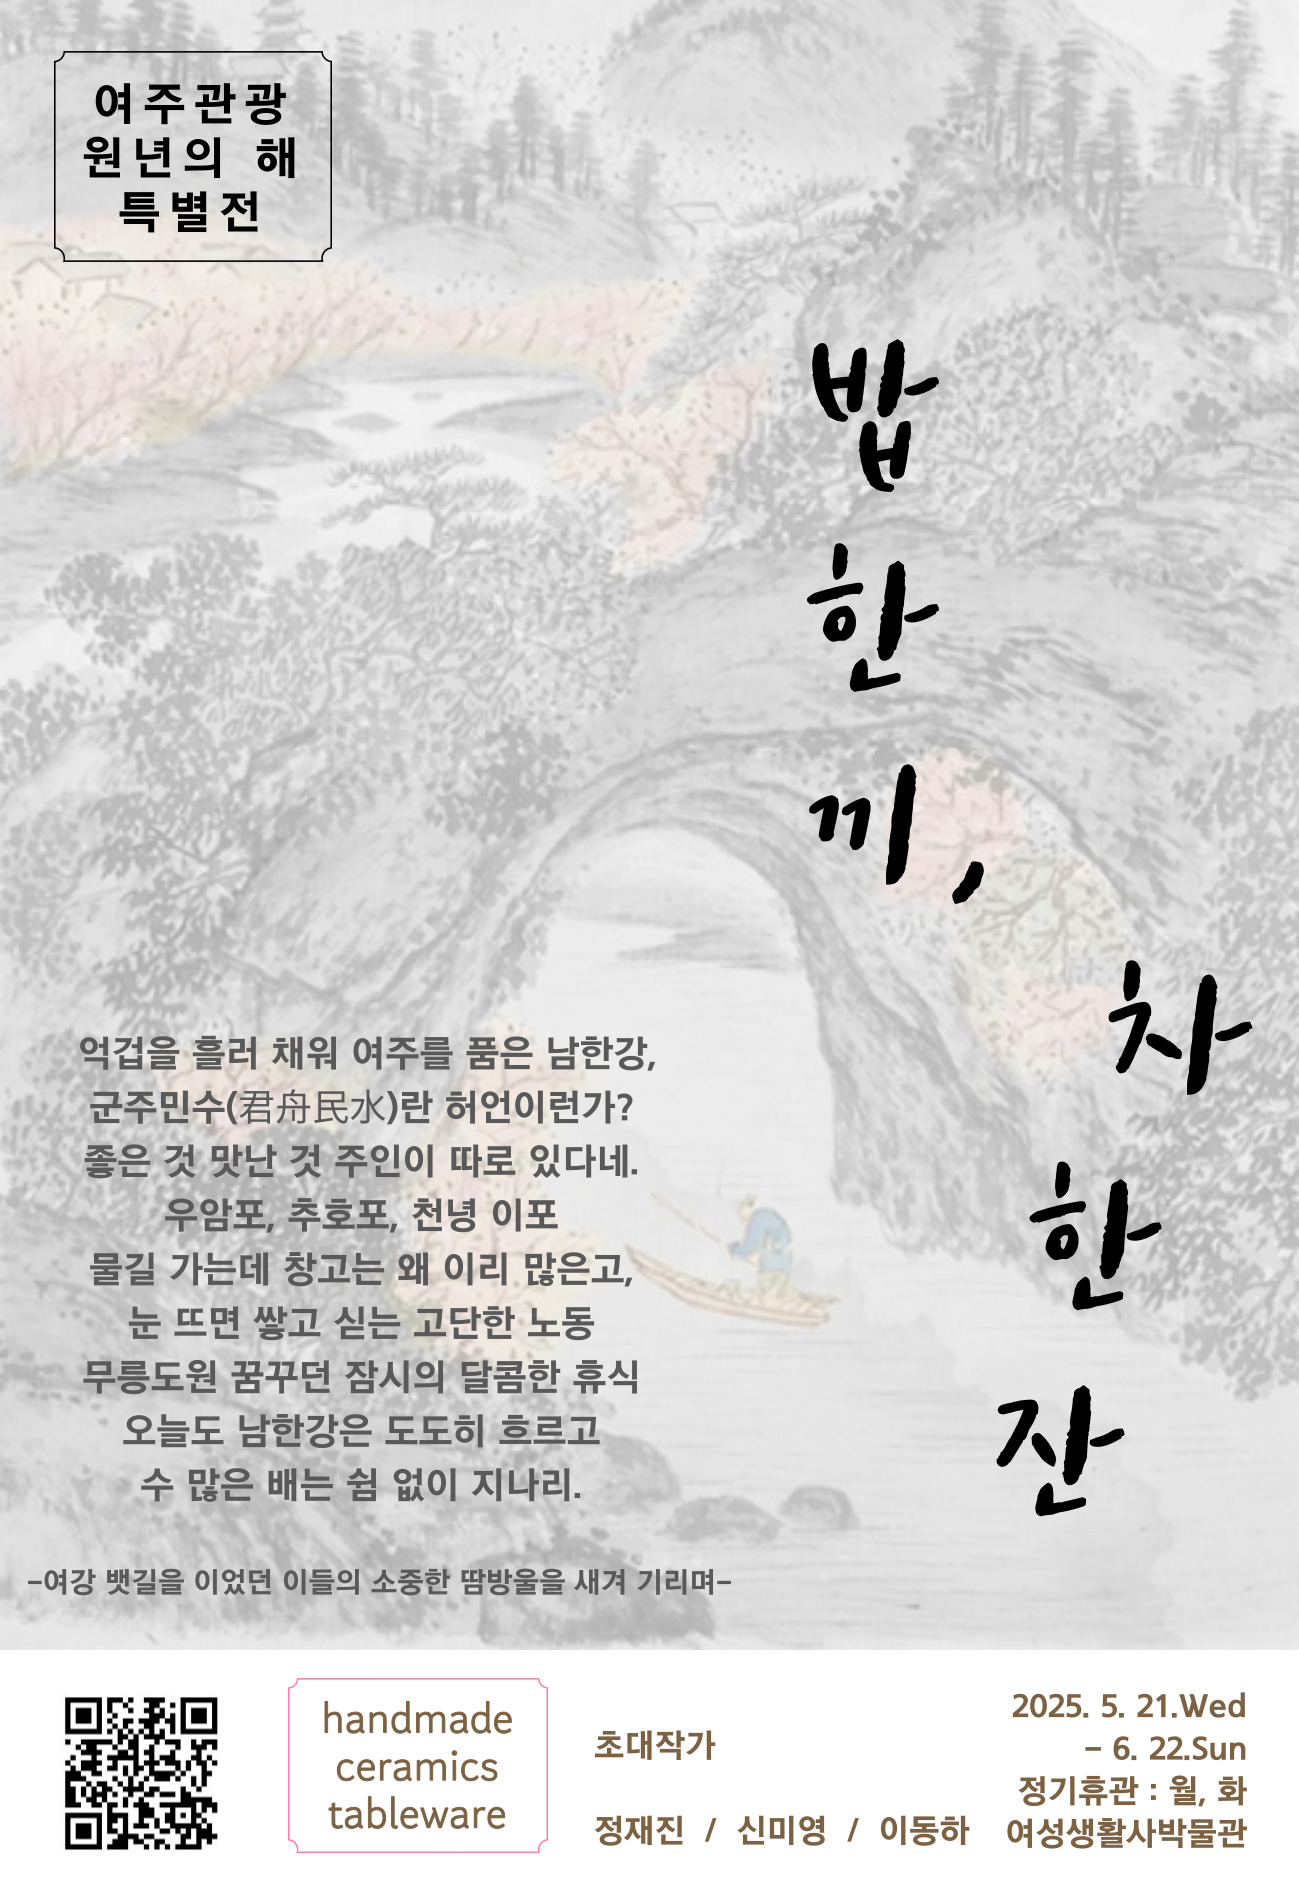 여주관광
원년의 해
특별전
밥
한
끼,
차
한
잔
억겁을 흘러 채워 여주를 품은 남한강,
군주민수(君舟民水)란 허언이런가?
좋은 것 맛난 것 주인이 따로 있다네.
우암포, 추호포, 천녕 이포
물길 가는데 창고는 왜 이리 많은고,
눈 뜨면 쌓고 싣는 고단한 노동
무릉도원 꿈꾸던 잠시의 달콤한 휴식
오늘도 남한강은 도도히 흐르고
수 많은 배는 쉼 없이 지나리.
-여강 뱃길을 이었던 이들의 소중한 땀방울을 새겨 기리며-
handmade
ceramics
tableware
초대작가
정재진 / 신미영 / 이동하
2025. 5. 21.Wed
- 6. 22.Sun
정기휴관 : 월, 화
여성생활사박물관